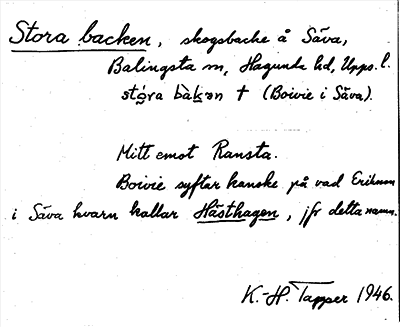 Stora backen, skogsbacke å Säva,
Balingsta sn, Hagunda hd, Upps. l.
stó̀ra bàken † (Boivie i Säva).
Mitt emot Ransta.
Boivie syftar kanske på vad Eriksson
i Säva kvarn kallar Hästhagen, jfr detta namn.
K.-H. Tapper 1946.